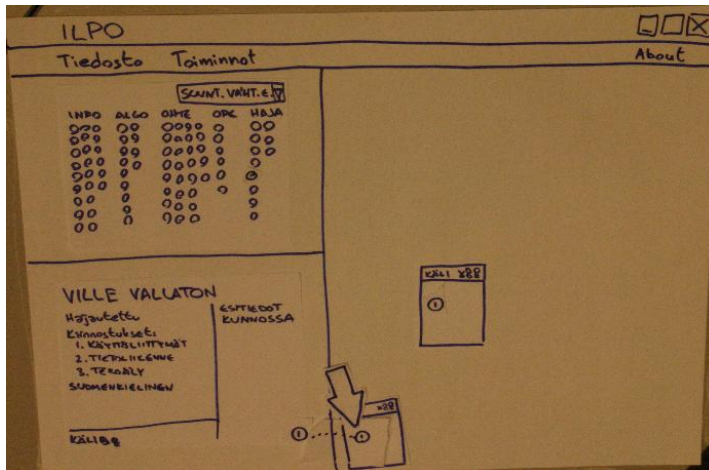 ILPO
Tiedosto Toiminnot About
SUUNT. VAHT.E.
INFO ALGO OHTE OPE HAJA
KÄLI x88
1
VILLE VALLATON
Hajautettu
Kiinnostukset:
1. KÄYTTÖLIITTYMÄT
2. TIETOLIIKENNE
3. TEKOÄLY
SUOMENKIELINEN
ESITIEDOT
KUNNOSSA
x88
1
1
KÄLI88